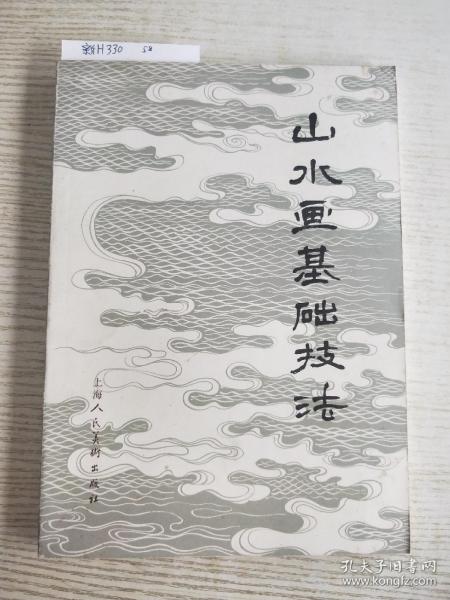 H330 58
山水画基础技法
上海人民美術出版社
孔夫子旧书网
www.kongfz.com